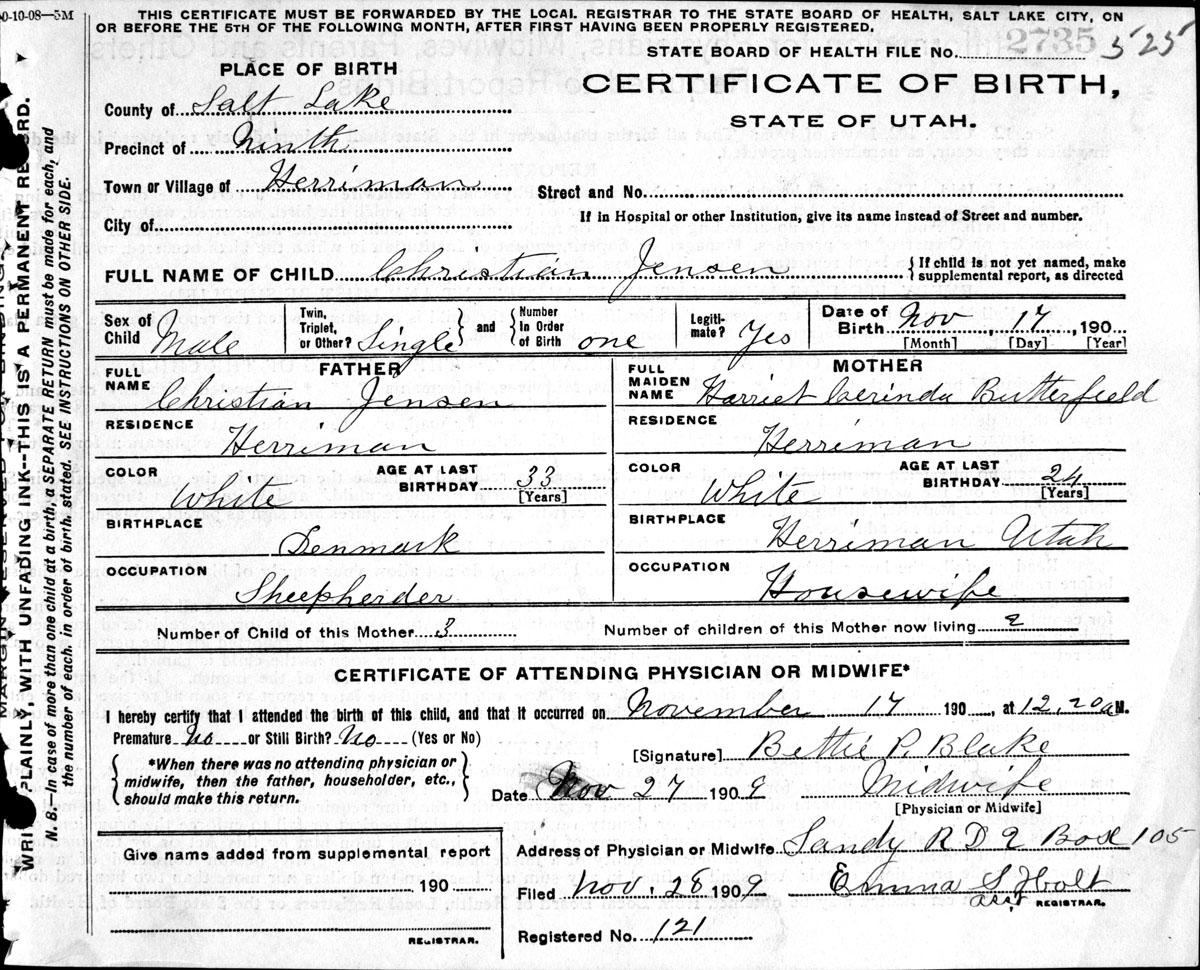 0-10-08—5M
THIS CERTIFICATE MUST BE FORWARDED BY THE LOCAL REGISTRAR TO THE STATE BOARD OF HEALTH, SALT LAKE CITY, ON
OR BEFORE THE 5TH OF THE FOLLOWING MONTH, AFTER FIRST HAVING BEEN PROPERLY REGISTERED,
STATE BOARD OF HEALTH FILE NO. 2735 525
PLACE OF BIRTH
CERTIFICATE OF BIRTH,
STATE OF UTAH.
County of Salt Lake
Precinct of Ninth
Town or Village of Herriman
Street and No.
City of
If in Hospital or other Institution, give its name instead of Street and number.
FULL NAME OF CHILD Christian Jensen { If child is not yet named, make
supplemental report, as directed
Sex of Child Male
Twin, Triplet, or Other? Single } and { Number In Order of Birth one
Legiti-mate? Yes
Date of Birth Nov 17, 190
[Month] [Day] [Year]
FATHER
FULL NAME Christian Jensen
RESIDENCE Herriman
COLOR White AGE AT LAST BIRTHDAY 33 [Years]
BIRTHPLACE Denmark
OCCUPATION Sheepherder
MOTHER
FULL MAIDEN NAME Harriet Cerinda Butterfield
RESIDENCE Herriman
COLOR White AGE AT LAST BIRTHDAY 24 [Years]
BIRTHPLACE Herriman Utah
OCCUPATION Housewife
Number of Child of this Mother 3 Number of children of this Mother now living 2
CERTIFICATE OF ATTENDING PHYSICIAN OR MIDWIFE*
I hereby certify that I attended the birth of this child, and that it occurred on November 17 190 , at 12.20 a M.
Premature No or Still Birth? No (Yes or No)
[Signature] Bettie P. Blake
{ *When there was no attending physician or
midwife, then the father, householder, etc.,
should make this return. }
Date Nov 27 1909 Midwife
[Physician or Midwife]
Give name added from supplemental report
190
REGISTRAR.
Address of Physician or Midwife Sandy R D 2 Box 105
Filed Nov. 28 1909 Emma S Holt
Asst REGISTRAR.
Registered No. 121
MARGIN RESERVED FOR BINDING
WRITE PLAINLY, WITH UNFADING INK--THIS IS A PERMANENT RECORD.
N. B.—In case of more than one child at a birth, a SEPARATE RETURN must be made for each, and
the number of each, in order of birth, stated. SEE INSTRUCTIONS ON OTHER SIDE.